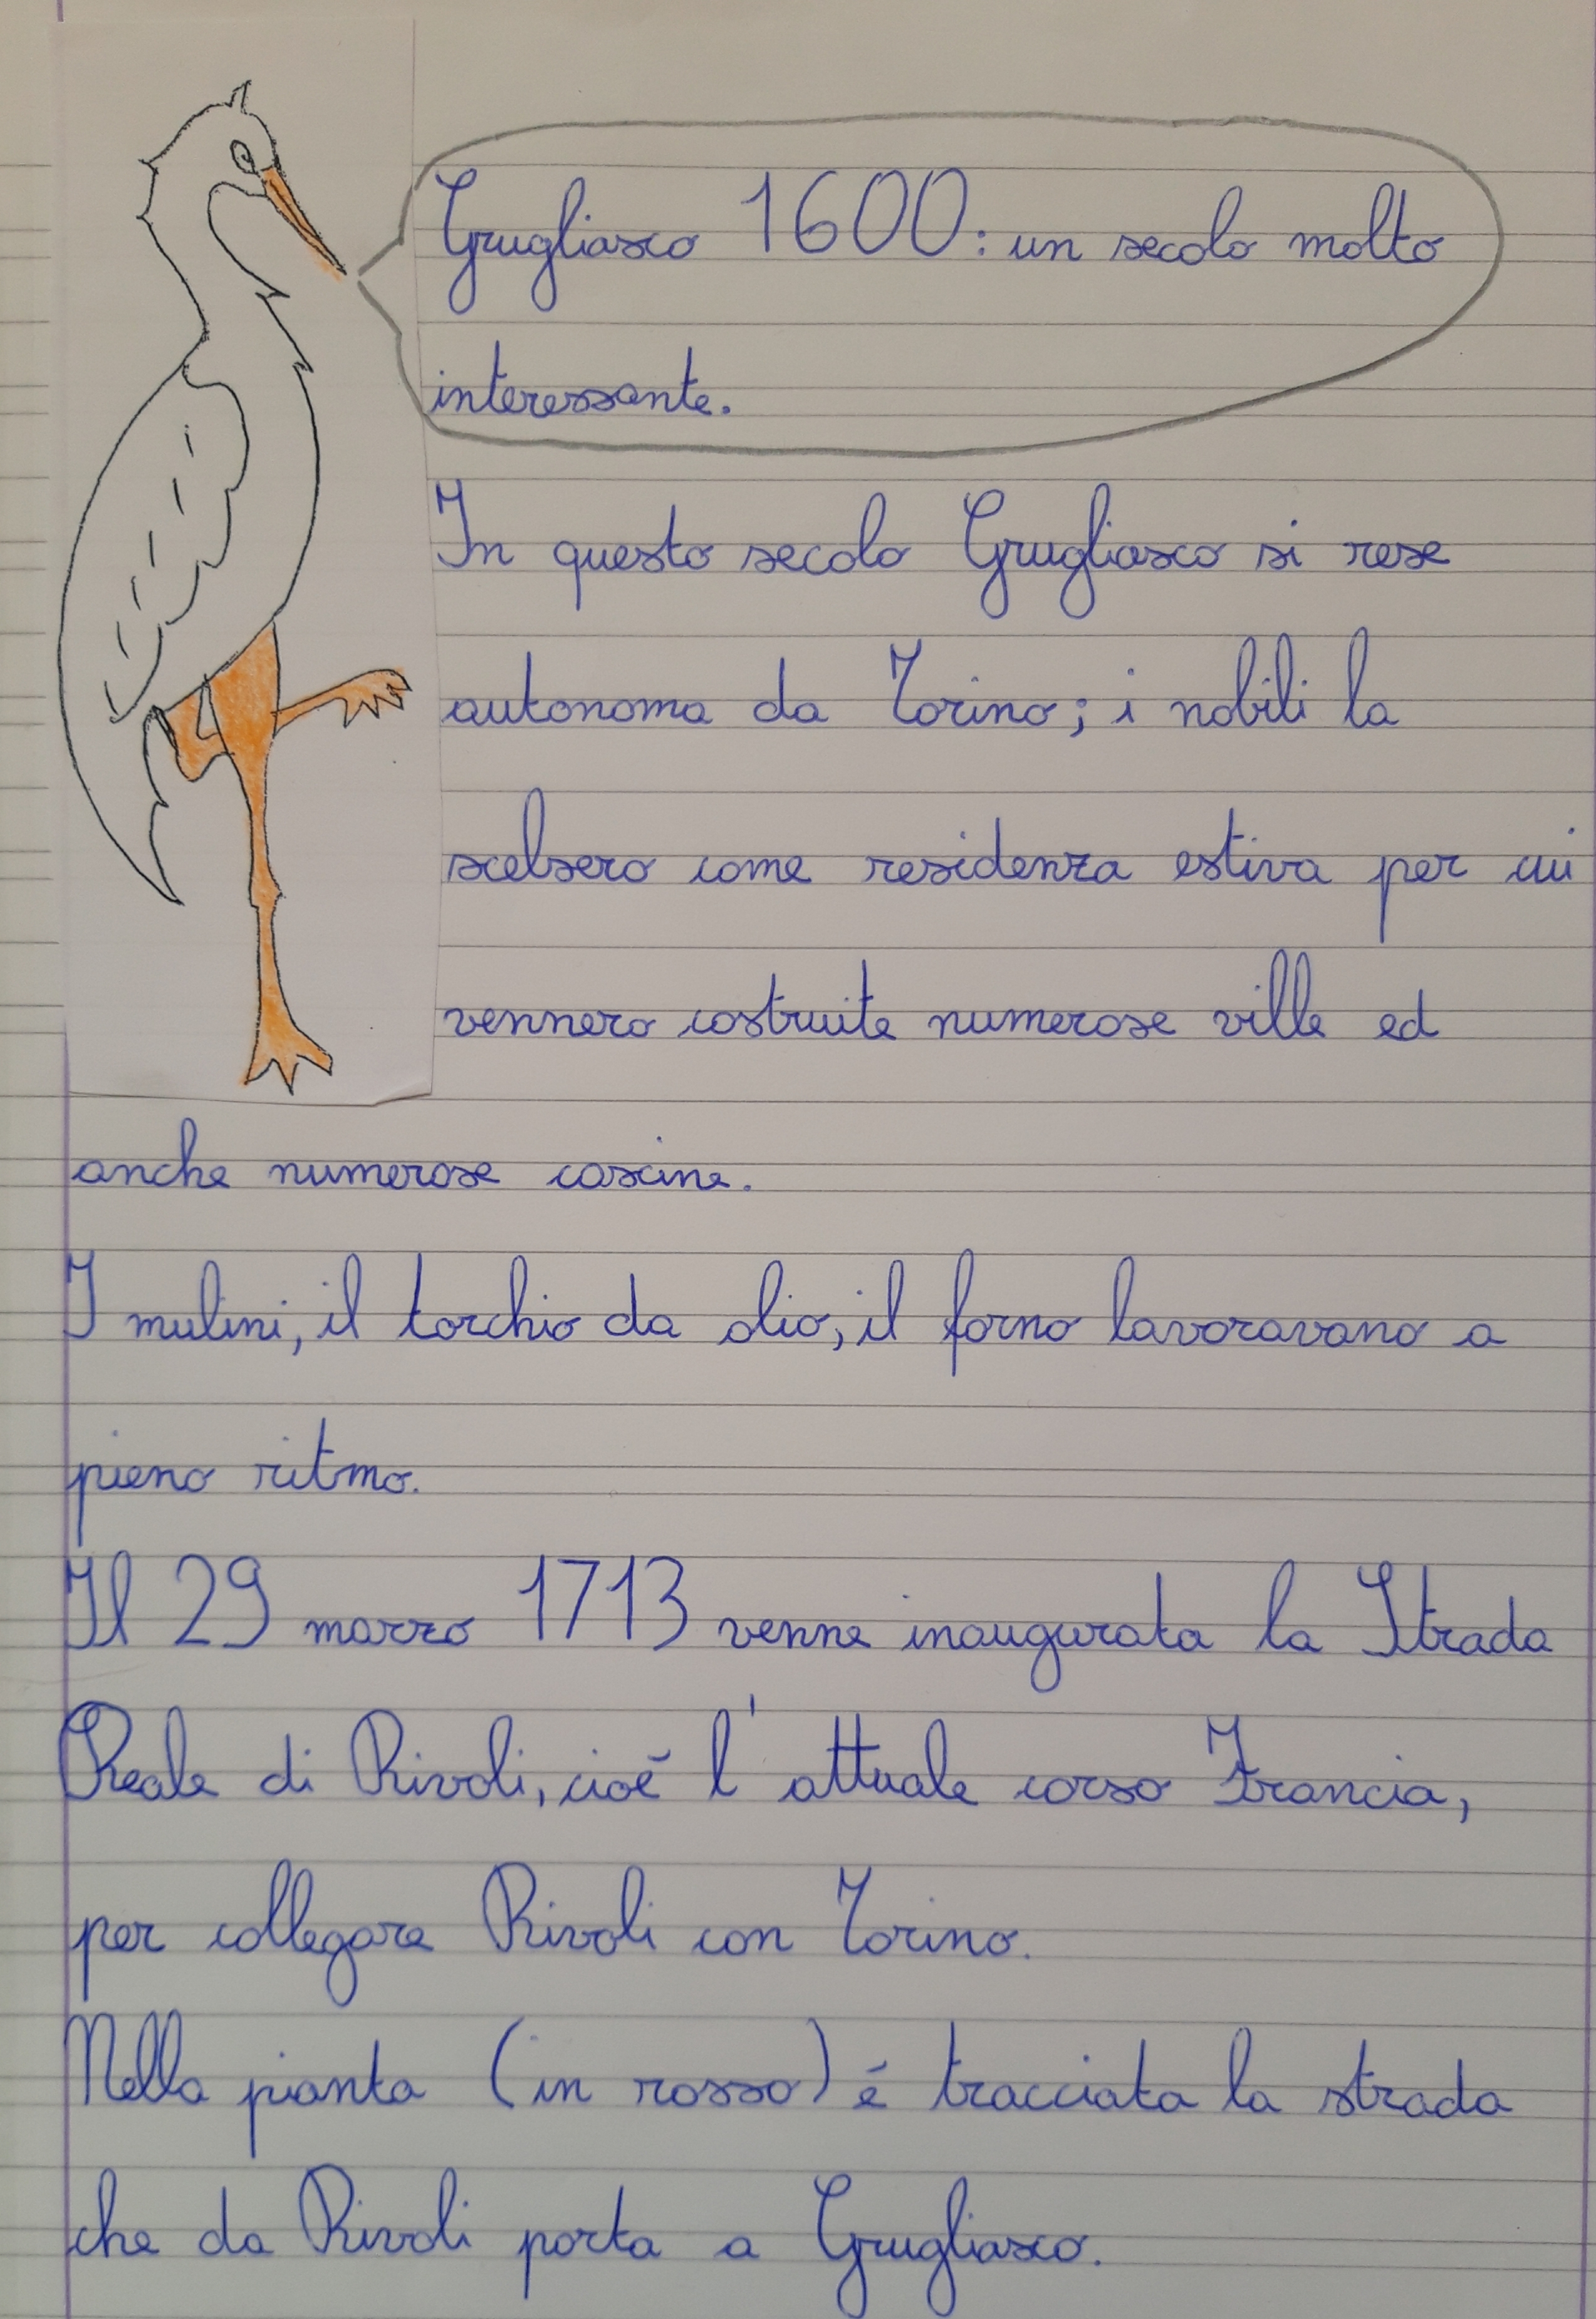 Grugliasco 1600: un secolo molto
interessante.
In questo secolo Grugliasco si rese
autonoma da Torino; i nobili la
scelsero come residenza estiva per cui
vennero costruite numerose ville ed
anche numerose cascine.
I mulini, il torchio da olio, il forno lavoravano a
pieno ritmo.
Il 29 marzo 1713 venne inaugurata la Strada
Reale di Rivoli, cioè l'attuale corso Francia,
per collegare Rivoli con Torino.
Nella pianta (in rosso) é tracciata la strada
che da Rivoli porta a Grugliasco.